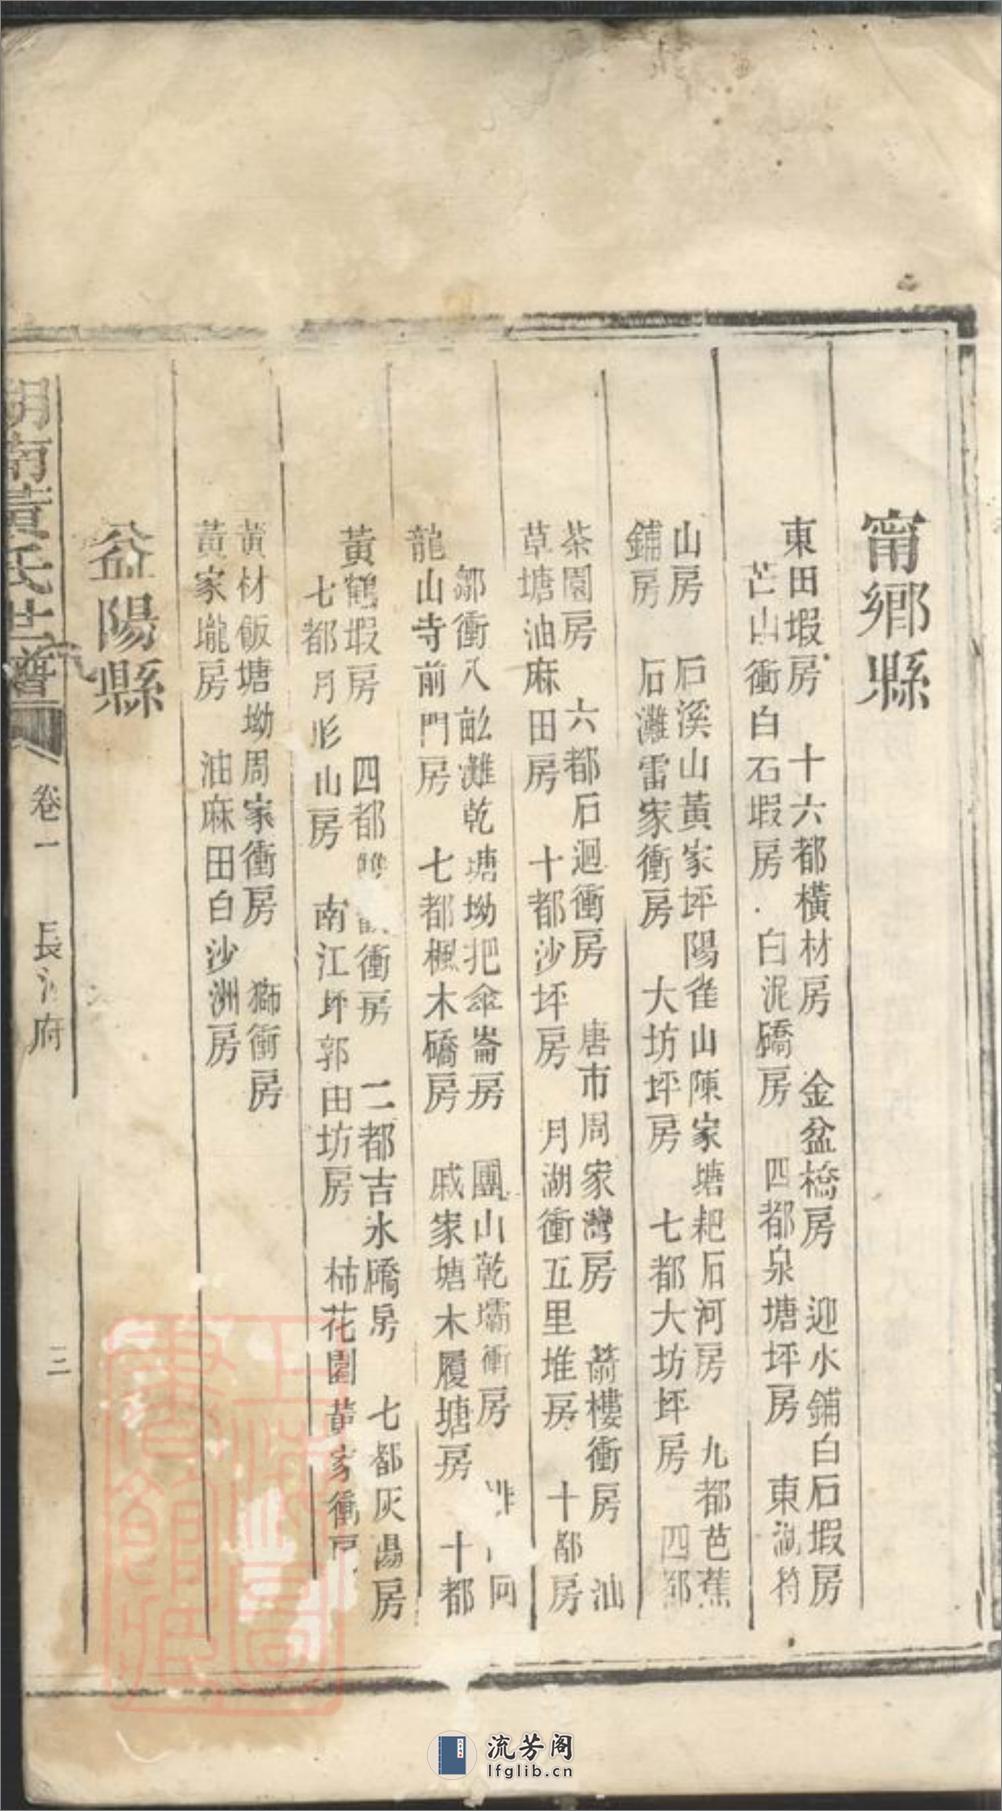 甯鄉縣
東田塅房　十六都橫材房　金盆橋房　迎水鋪白石塅房
芒山衝白石塅房　白泥磡房　四都泉塘坪房　東湖符
山房　石溪山黃家坪陽雀山陳家塘耙石河房　九都芭蕉
鋪房　石灘雷家衝房　大坊坪房　七都大坊坪房　四都
茶園房　六都石迴衝房　唐市周家灣房　箭樓衝房　油
草塘油麻田房　十都沙坪房　月湖衝五里堆房　十都房
鄒衝八畝灘乾塘坳把傘崙房　團山乾壩衝房
龍山寺前門房　七都楓木磡房　戚家塘木履塘房　十都
黃鶴塅房　四都雙衝房　二都吉水磡房　七都灰湯房
七都月形山房　南江坪郭田坊房　柿花園黃家衝房
黃材飯塘坳周家衝房　獅衝房
黃家壠房　油麻田白沙洲房
益陽縣
湖南黃氏世譜　卷一　長沙府　三
上海圖書館藏
流芳阁
lfglib.cn